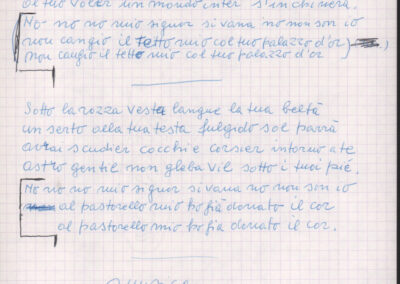 al tuo voler un mondo inter s'inchinerà.
No no no mio signor sì vana no non son io
non cangio il tetto mio col tuo palazzo d'or
non cangio il tetto mio col tuo palazzo d'or
Sotto la rozza veste langue la tua beltà
un serto alla tua testa fulgido sol parrà
avrai scudier cocchi e corsier intorno a te
astro gentil non gleba vil sotto i tuoi piè.
No no no mio signor sì vana no non son io
al pastorello mio ho già donato il cor
al pastorello mio ho già donato il cor.